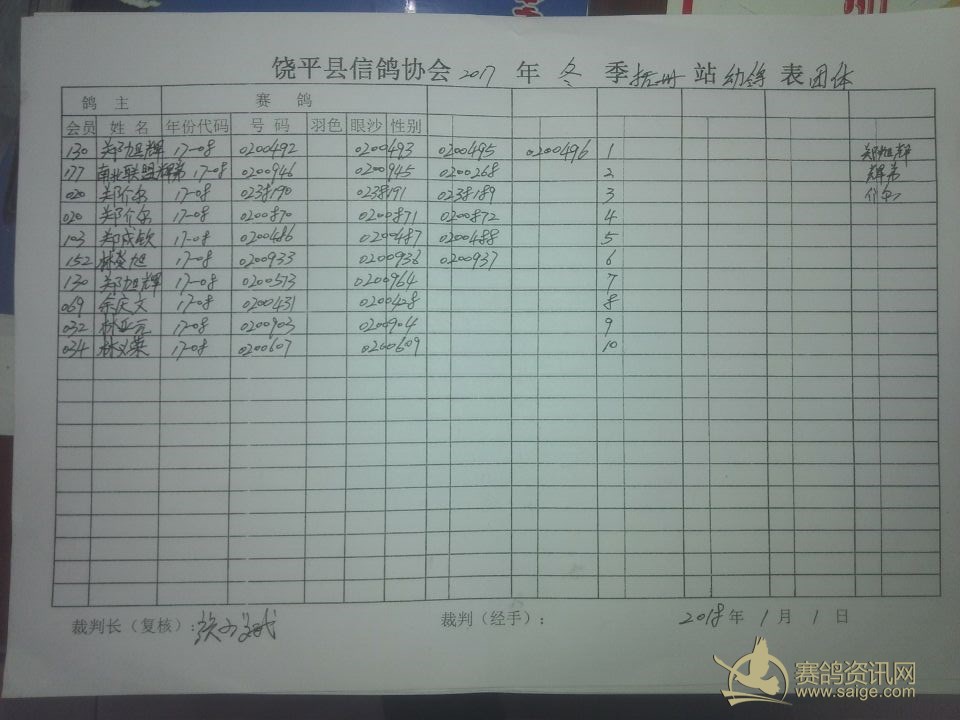 饶平县信鸽协会 2017 年 冬 季 抚州 站 幼鸽 表 团体
鸽 主 赛 鸽
会员 姓 名 年份代码 号 码 羽色 眼沙 性别
130 郑旭辉 17-08 0200492 0200493 0200495 0200496 1 郑旭辉
177 南北联盟辉弟 17-08 0200946 0200945 0200268 2 辉弟
020 郑介尔 17-08 0238190 0238191 0238189 3 介尔
020 郑介尔 17-08 0200870 0200871 0200872 4
103 郑成钦 17-08 0200486 0200487 0200488 5
152 林 旭 17-08 0200933 0200937 6
130 郑旭辉 17-08 0200573 0200964 7
069 余庆文 17-08 0200431 0200428 8
032 林 元 17-08 0200903 0200904 9
034 林义荣 17-08 0200607 0200609 10
裁判长（复核）: 裁判（经手）: 2018 年 1 月 1 日
赛鸽资讯网
www.saige.com